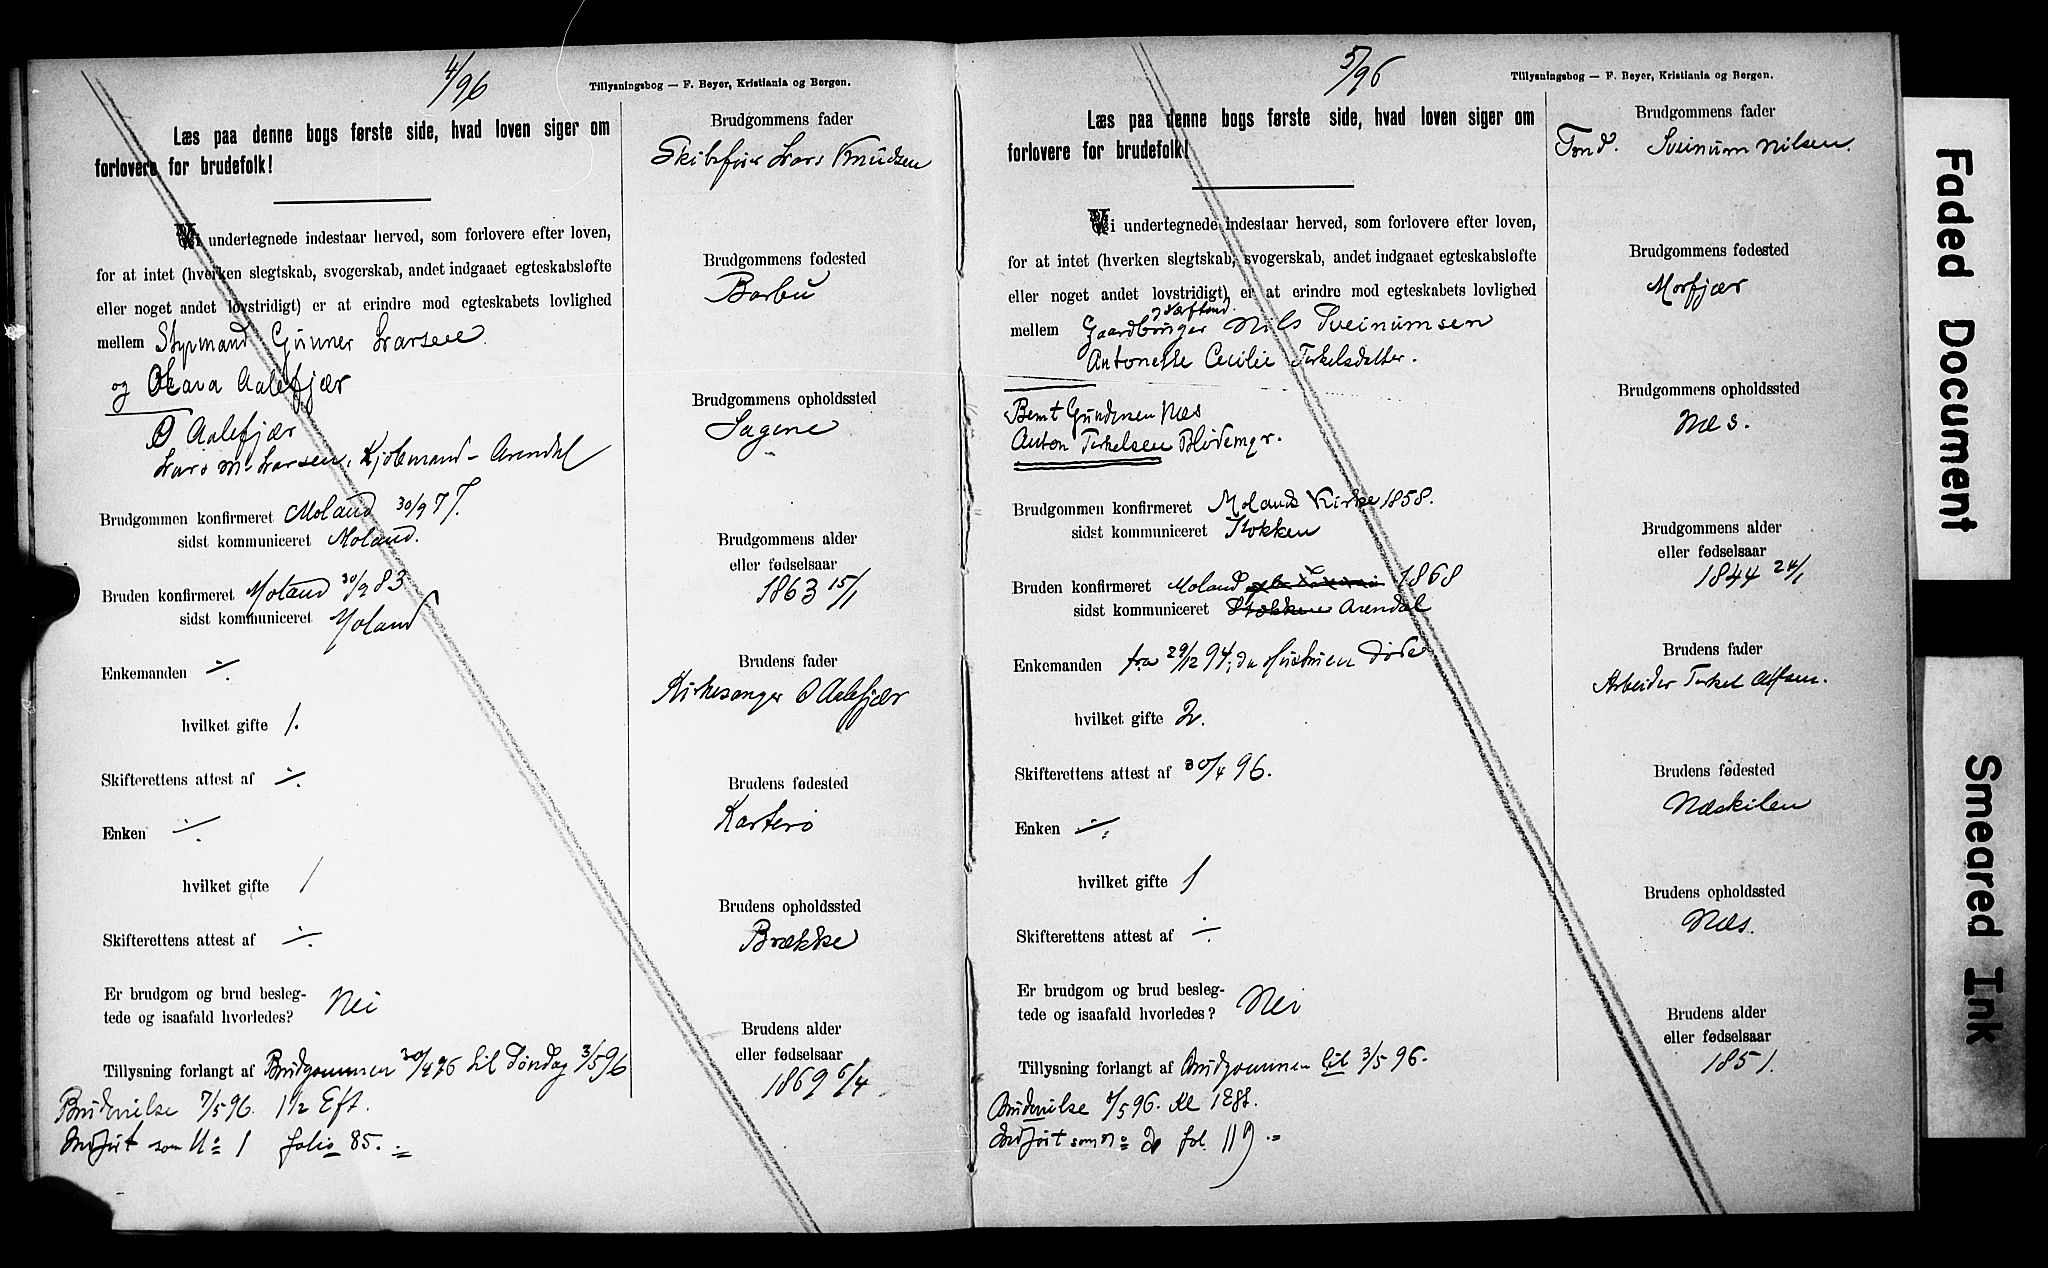 4/96
Tillysningsbog — F. Beyer, Kristiania og Bergen.
Læs paa denne bogs første side, hvad loven siger om
forlovere for brudefolk!
Vi undertegnede indestaar herved, som forlovere efter loven,
for at intet (hverken slegtskab, svogerskab, andet indgaaet egteskabsløfte
eller noget andet lovstridigt) er at erindre mod egteskabets lovlighed
mellem Styrmand Gunner Larsen
og Olava Aalefjær
O Aalefjær
Lars M. Larsen, Kjøbmand - Arendal
Brudgommen konfirmeret Moland 30/9 77.
sidst kommuniceret Moland.
Bruden konfirmeret Moland 30/9 83
sidst kommuniceret Moland
Enkemanden ./.
hvilket gifte 1.
Skifterettens attest af ./.
Enken ./.
hvilket gifte 1
Skifterettens attest af ./.
Er brudgom og brud besleg-
tede og isaafald hvorledes? Nei
Tillysning forlangt af Brudgommen 30/4 96 til Søndag 3/5 96
Brudevielse 7/5 96. 1 1/2 Eft.
Indført som No 1 folio 85.
Brudgommens fader
Skibsfører Lars Knudsen
Brudgommens fødested
Barbu
Brudgommens opholdssted
Sagene
Brudgommens alder
eller fødselsaar
1863 15/1
Brudens fader
Kirkesanger O Aalefjær
Brudens fødested
Kasterø
Brudens opholdssted
Brække
Brudens alder
eller fødselsaar
1869 6/4
5/96
Tillysningsbog — F. Beyer, Kristiania og Bergen.
Læs paa denne bogs første side, hvad loven siger om
forlovere for brudefolk!
Vi undertegnede indestaar herved, som forlovere efter loven,
for at intet (hverken slegtskab, svogerskab, andet indgaaet egteskabsløfte
eller noget andet lovstridigt) er at erindre mod egteskabets lovlighed
mellem Gaardbruger Nils Sveinumsen
Antonette Cecilie Terkelsdatter.
Bernt Gundersen Næs
Anton Terkelsen
Brudgommen konfirmeret Molands Kirke 1858.
sidst kommuniceret Stokken
Bruden konfirmeret Moland 1868
sidst kommuniceret Stokken Arendal
Enkemanden fra 29/12 94, da Hustruen døde
hvilket gifte 2.
Skifterettens attest af 30/4 96.
Enken ./.
hvilket gifte 1
Skifterettens attest af ./.
Er brudgom og brud besleg-
tede og isaafald hvorledes? Nei
Tillysning forlangt af Brudgommen til 3/5 96.
Brudevielse 8/5 96. Kl
Indført som No 2 fol. 119
Brudgommens fader
Sveinum Nilsen.
Brudgommens fødested
Morfjær
Brudgommens opholdssted
Næs.
Brudgommens alder
eller fødselsaar
1844 24/1
Brudens fader
Arbeider Terkel Alfsen.
Brudens fødested
Næskilen
Brudens opholdssted
Næs.
Brudens alder
eller fødselsaar
1851.
Faded Document
Smeared Ink